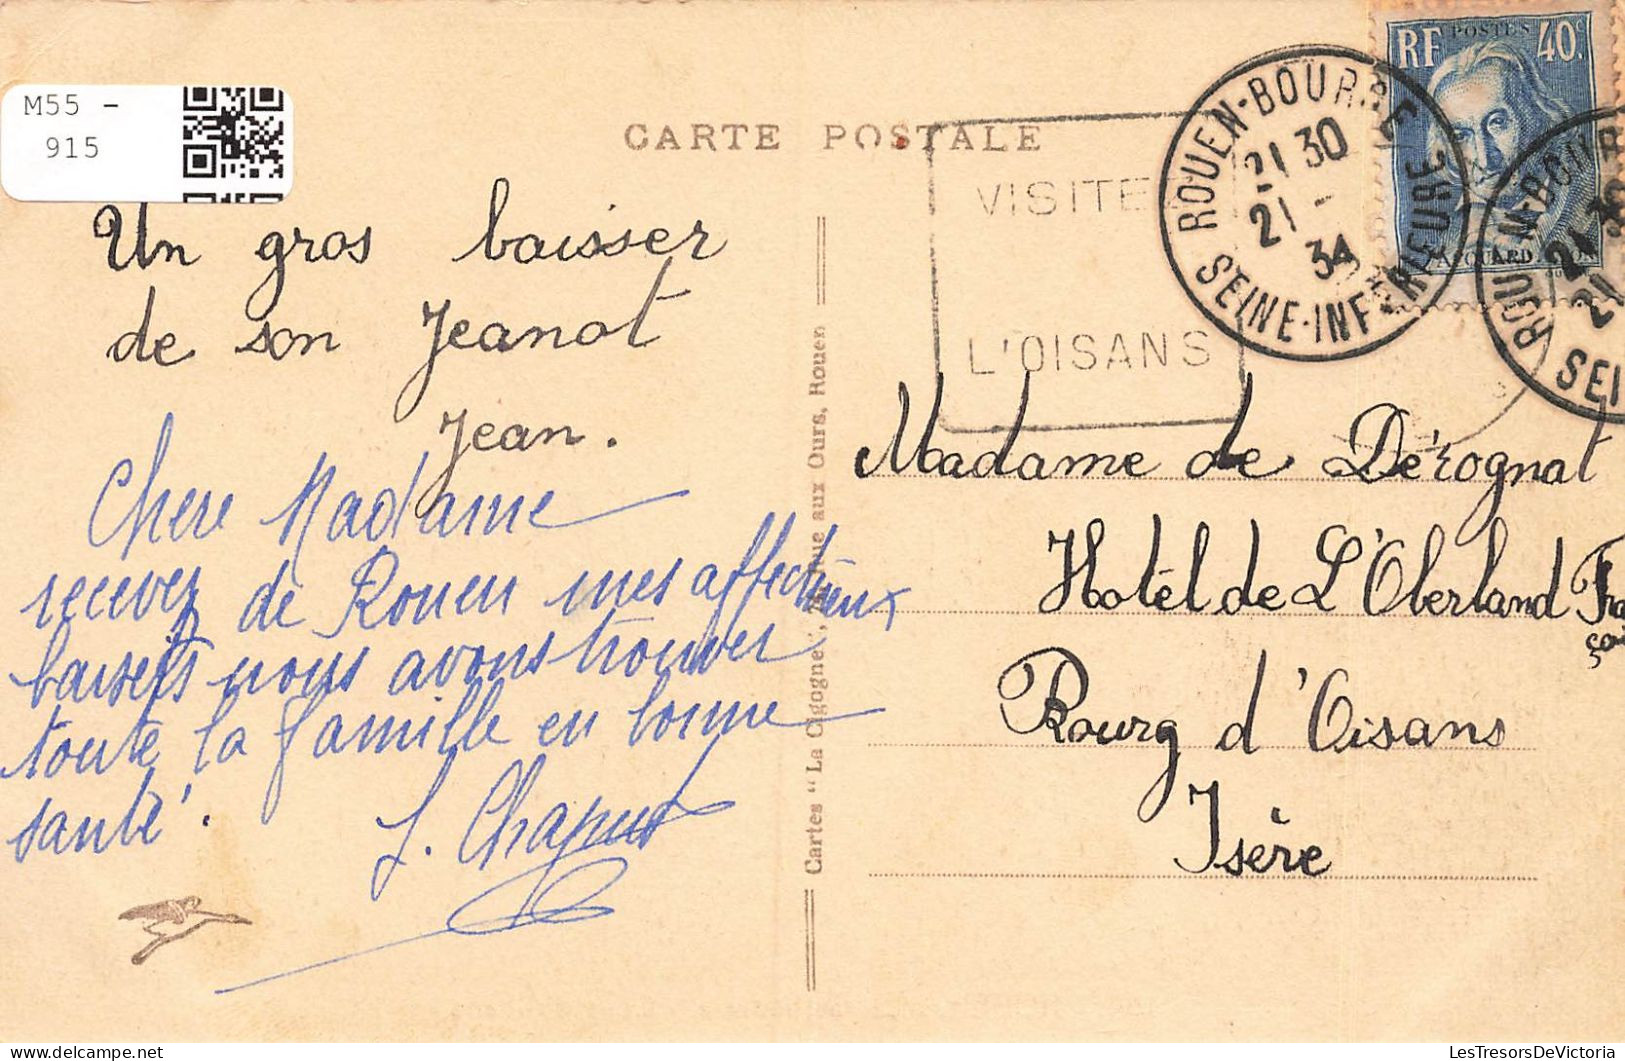 M55 -
915
CARTE POSTALE
RF POSTES 40c
ROUEN-BOURSE
21 30
21 -
34
SEINE-INFÉRIEURE
VISITEZ
L'OISANS
Un gros baisser
de son Jeanot
Jean.
Chere Madame
recevez de Rouen mes affectueux
baisers nous avons trouver
toute la famille en bonne
santé.
J. Chaput
Cartes "La Cigogne", aux Ours, Rouen
Madame de Dérognat
Hotel de L'Oberland Fran
çai
Bourg d'Oisans
Isère
LesTresorsDeVictoria